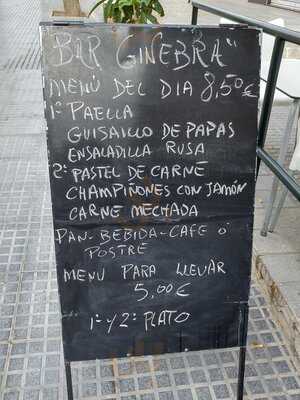 BAR GINEBRA"
MENÚ DEL DIA 8,50€
1º PAELLA
GUISAILLO DE PAPAS
ENSALADILLA RUSA
2º PASTEL DE CARNE
CHAMPIÑONES CON JAMÓN
CARNE MECHADA
PAN-BEBIDA-CAFE Ó
POSTRE
MENU PARA LLEVAR
5,00€
1º Y 2º PLATO